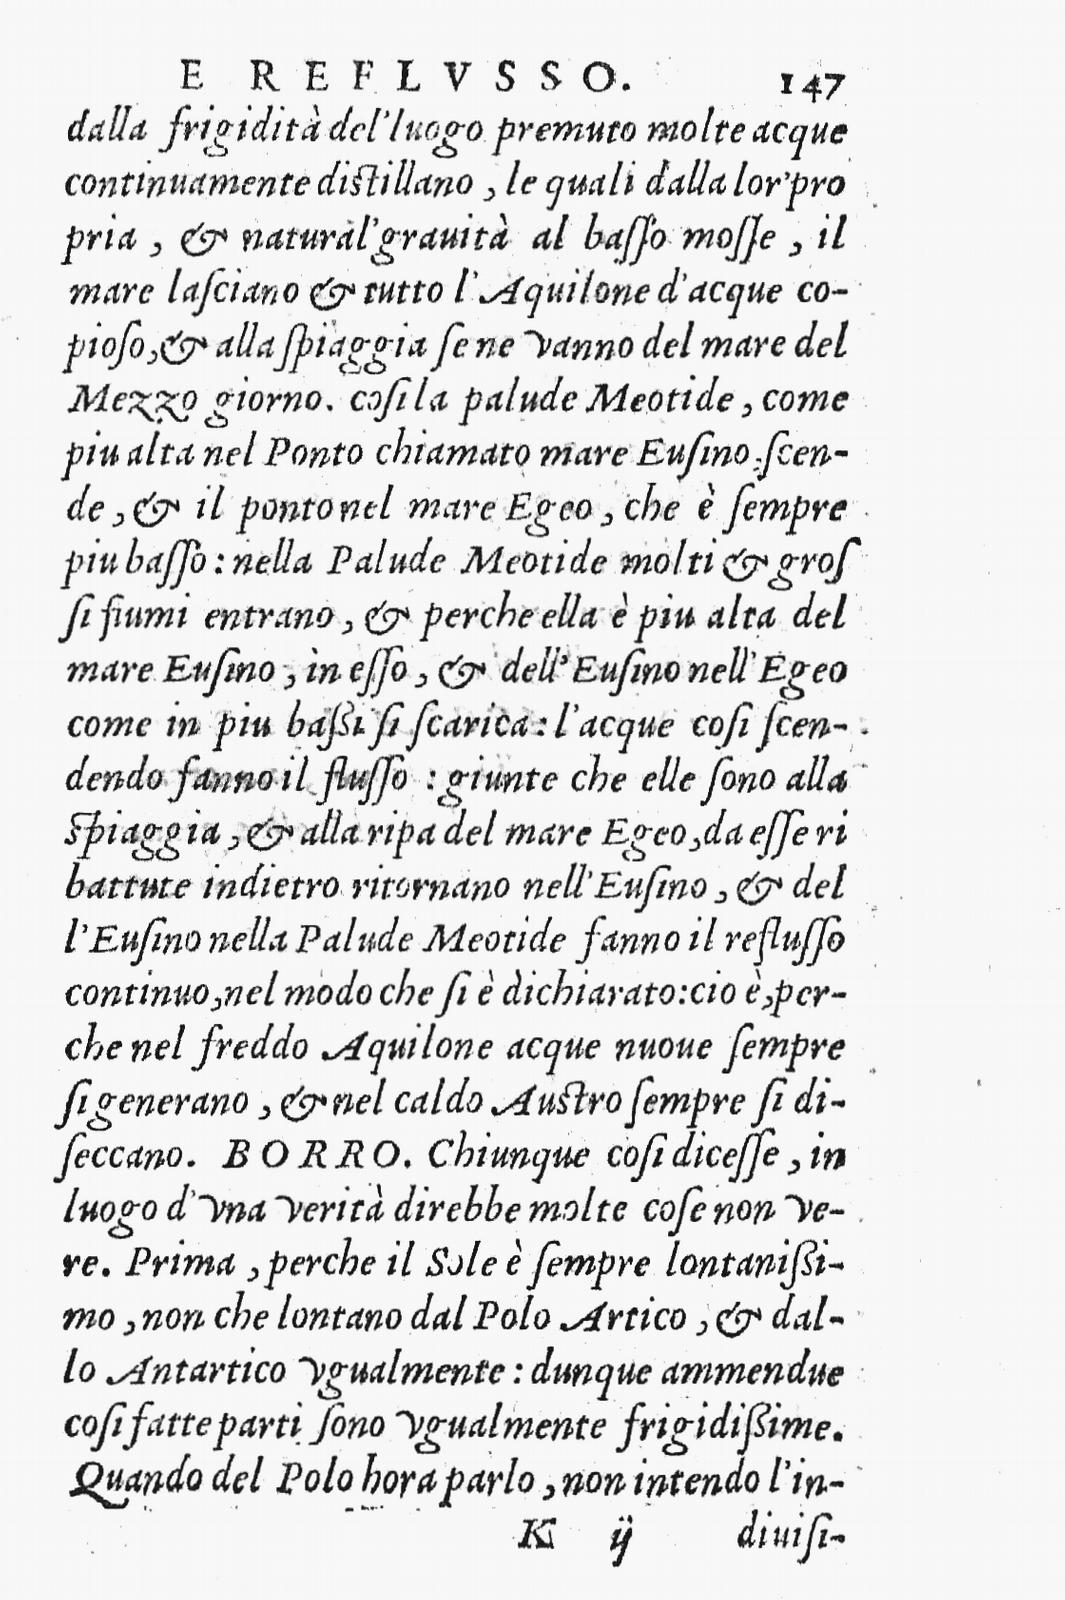 E REFLVSSO. 147
dalla frigidità del'luogo premuto molte acque
continuamente distillano, le quali dalla lor'pro
pria, & natural'grauità al baſſo moſſe, il
mare laſciano & tutto l'Aquilone d'acque co-
pioſo, & alla ſpiaggia ſe ne vanno del mare del
Mezzo giorno. coſi la palude Meotide, come
piu alta nel Ponto chiamato mare Euſino ſcen-
de, & il ponto nel mare Egeo, che è ſempre
piu baſſo: nella Palude Meotide molti & groſ
ſi fiumi entrano, & perche ella è piu alta del
mare Euſino, in eſſo, & dell'Euſino nell'Egeo
come in piu baßi ſi ſcarica: l'acque coſi ſcen-
dendo fanno il fluſſo: giunte che elle ſono alla
ſpiaggia, & alla ripa del mare Egeo, da eſſe ri
battute indietro ritornano nell'Euſino, & del
l'Euſino nella Palude Meotide fanno il refluſſo
continuo, nel modo che ſi è dichiarato: cio è, per-
che nel freddo Aquilone acque nuoue ſempre
ſi generano, & nel caldo Auſtro ſempre ſi di-
ſeccano. BORRO. Chiunque coſi diceſſe, in
luogo d'vna verità direbbe molte coſe non ve-
re. Prima, perche il Sole è ſempre lontanißi-
mo, non che lontano dal Polo Artico, & dal-
lo Antartico vgualmente: dunque ammendue
coſi fatte parti ſono vgualmente frigidißime.
Quando del Polo hora parlo, non intendo l'in-
K ij diuiſi-